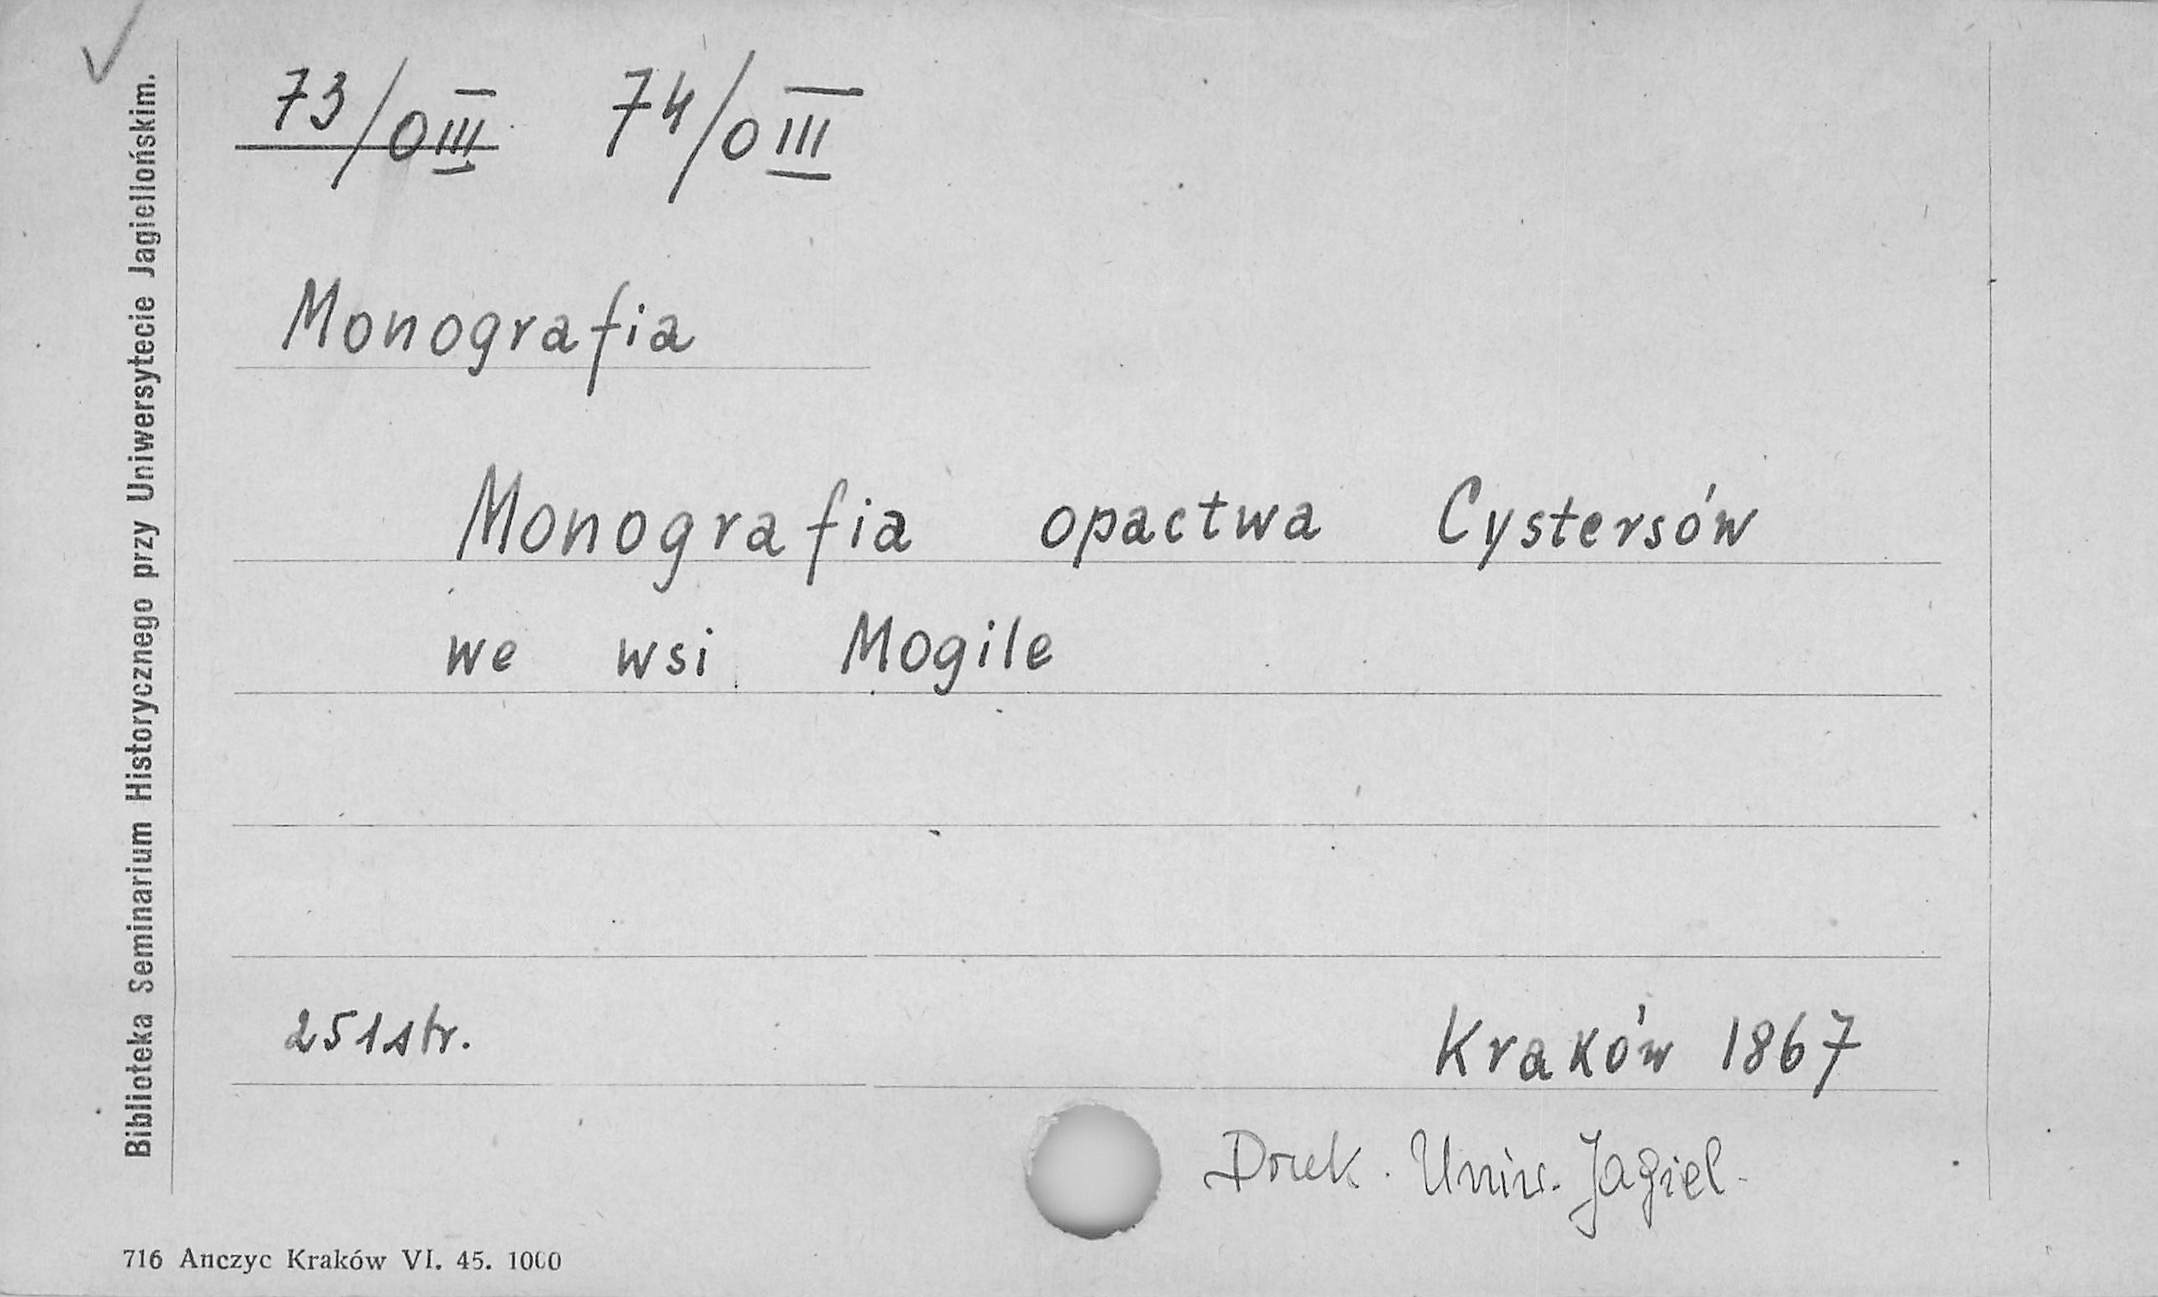 73/O III 74/O III
Monografia
Monografia opactwa Cystersów
we wsi Mogile
251 str.
Kraków 1867
Druk. Uniw. Jagiel.
Biblioteka Seminarium Historycznego przy Uniwersytecie Jagiellońskim.
716 Anczyc Kraków VI. 45. 1000